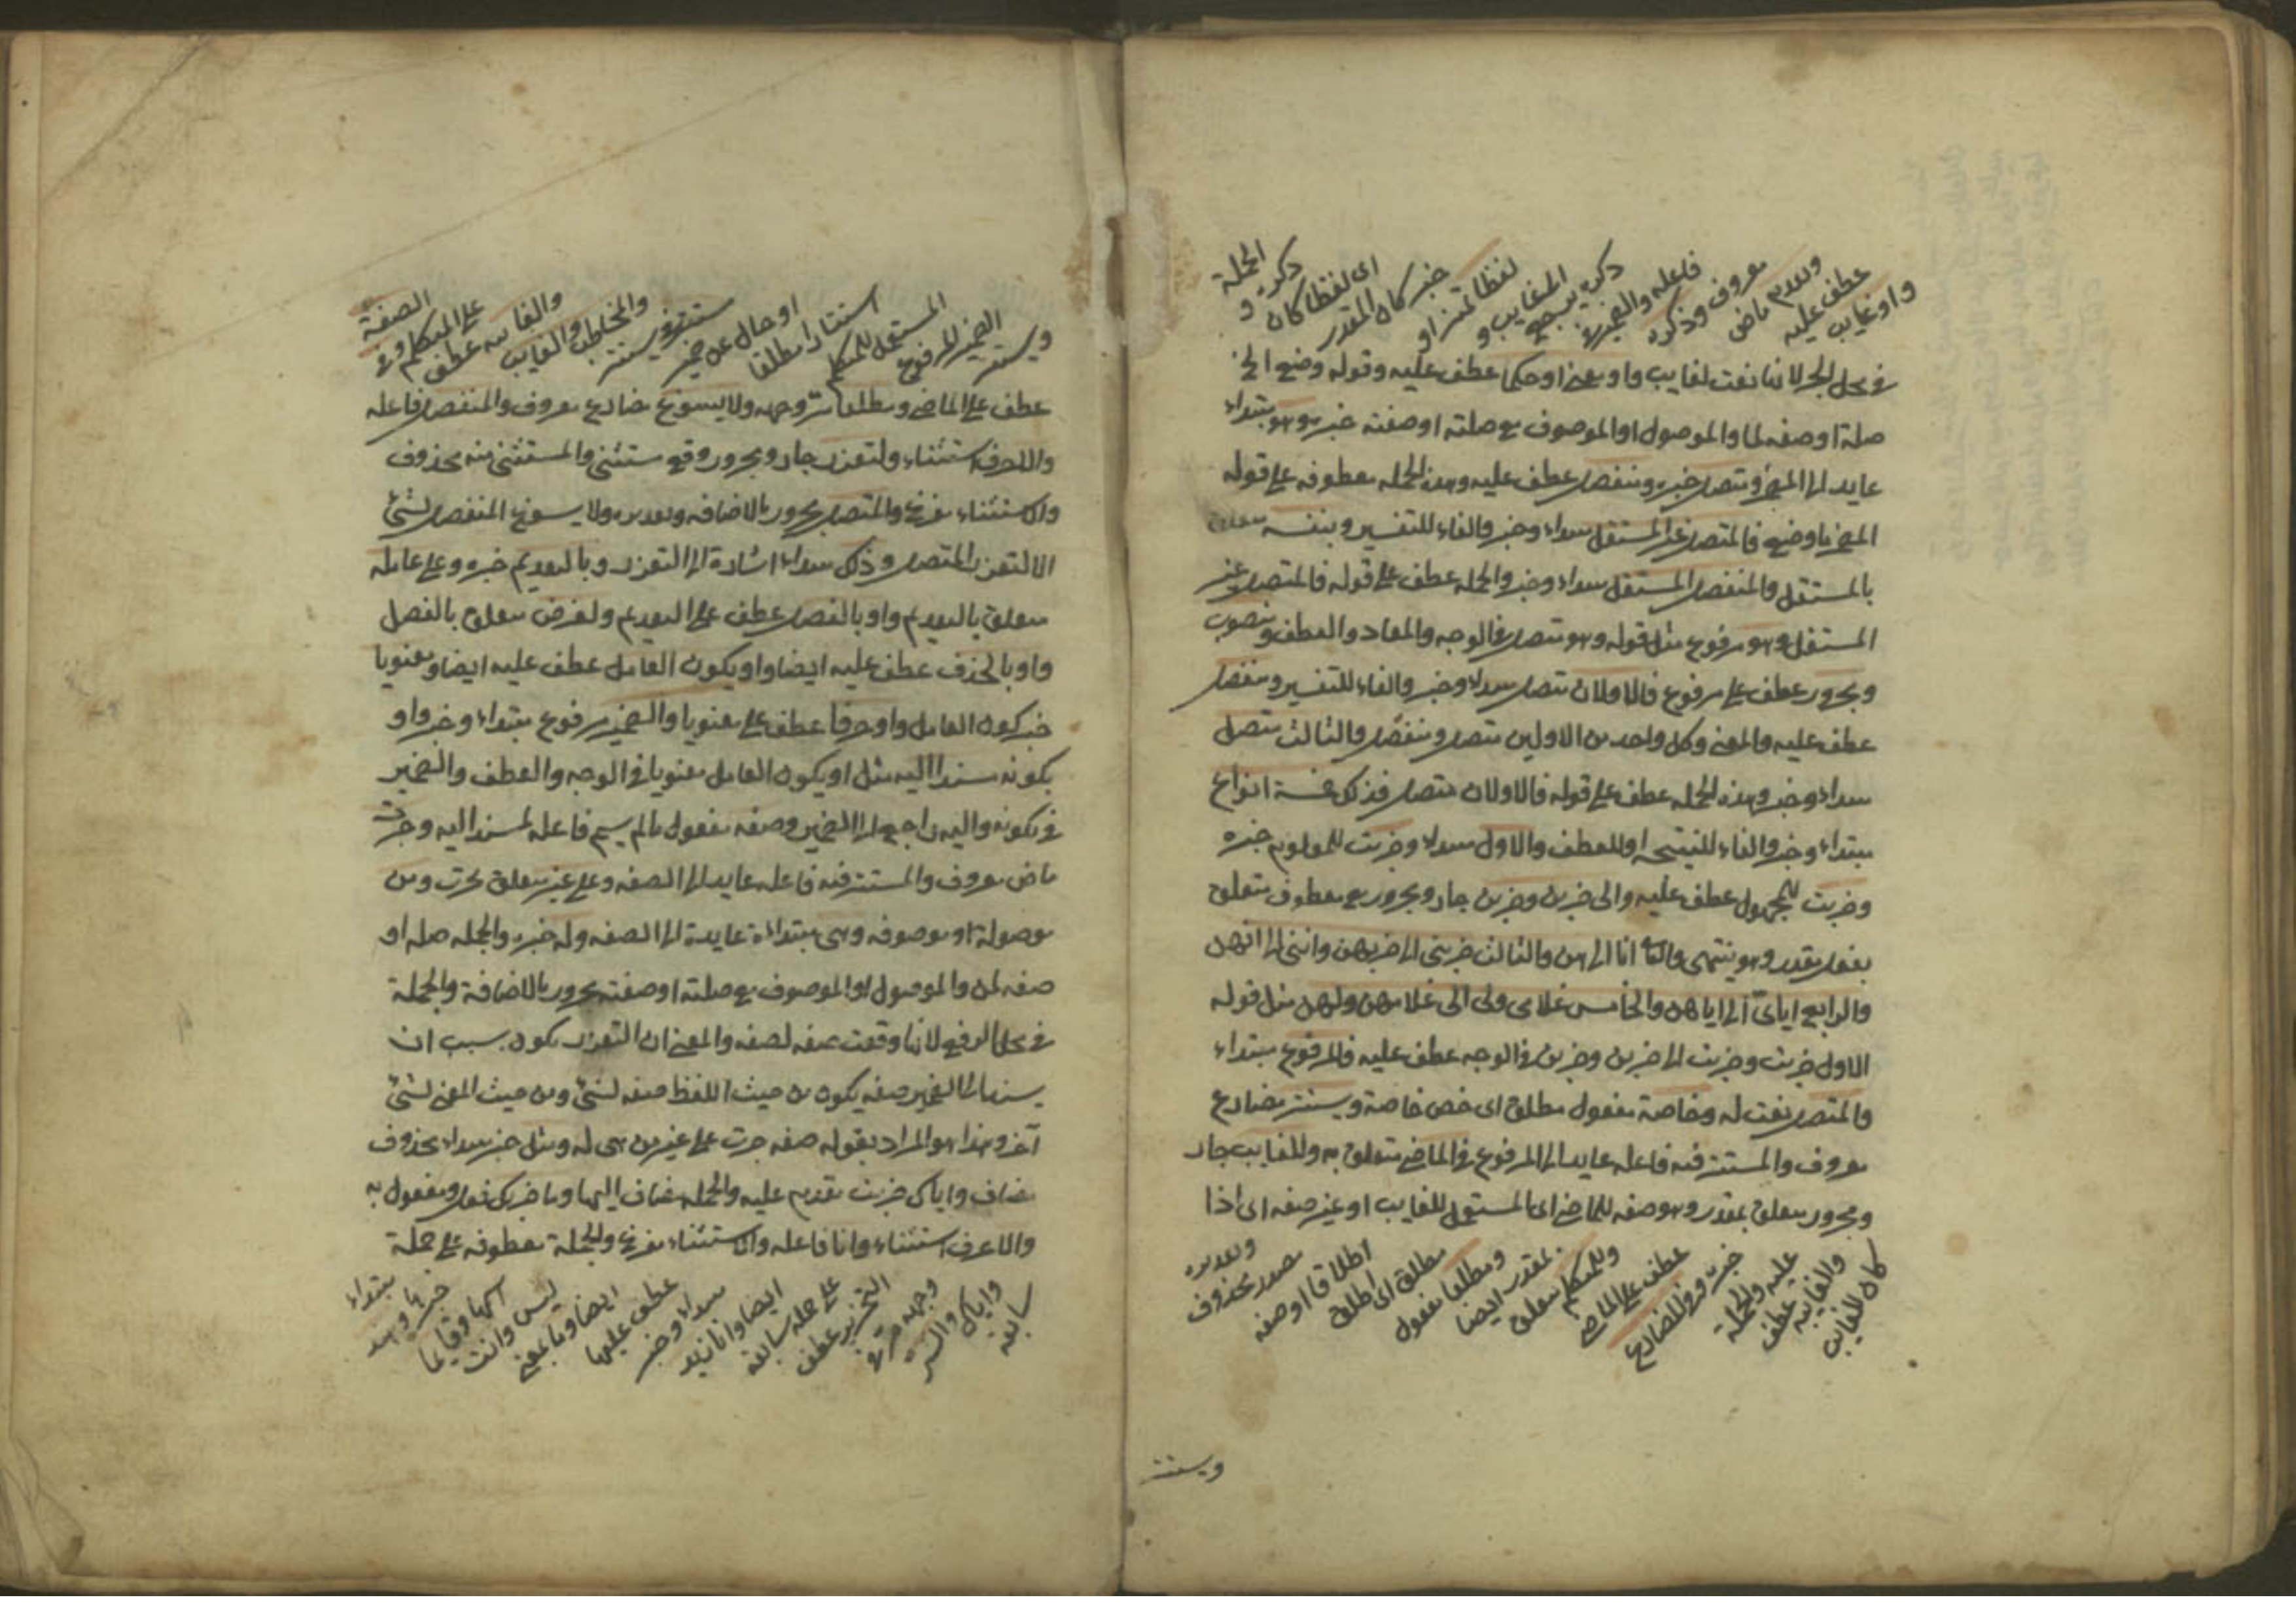 واو غايب
عطف عليه
وتقدم ماض
معروف وذكره
فاعله والضمير في
ذكره يرجع
الى غايب و
لفظا تميز او
خبر كان المقدر
اى لفظا كان
ذكره و
الجملة
في محل الجر لانها نعت لغايب واو معنى او حكما عطف عليه وقوله وضع الخ
صلة او صفه لما والموصول او الموصوف مع صلته او صفته خبر هو وهو مبتداء
عايد الى المضمر ومتصل خبره ومنفصل عطف عليه وهذه الجمله معطوفه على قوله
المضمر ما وضع فالمتصل غير المستقل مبتداء وخبر والفاء للتفسير وبنفسه متعلق
بالمستقل والمنفصل المستقل مبتداء وخبر والجمله عطف على قوله فالمتصل غير
المستقل وهو مرفوع مثل قوله وهو متصل في الوجه والمعاد والعطف ومنصوب
ومجرور عطف على مرفوع فالاولان متصل مبتداء وخبر والفاء للتفسير ومنفصل
عطف عليه والمعنى وكل واحد من الاولين متصل ومنفصل والثالث متصل
مبتداء وخبر وهذه الجمله عطف على قوله فالاولان متصل فذلك خمسة انواع
مبتداء وخبر والفاء للنتيجه او للعطف والاول مبتداء وضربت للمعلوم خبره
وضربت للمجهول عطف عليه والى ضربن وضربن جار ومجرور مع معطوف متعلق
بفعل مقدر وهو ينتهى والثانى انا الى هن والثالث ضربنى الى ضربهن واننى الى انهن
والرابع اياى الى اياهن والخامس غلامى ولى الى غلامهن ولهن مثل قوله
الاول ضربت وضربت الى ضربن وضربن في الوجه عطف عليه فالمرفوع مبتداء
والمتصل نعت له وخاصة مفعول مطلق اى خص خاصة ويستتر مضارع
معروف والمستتر فيه فاعله عايد الى المرفوع في الماضى متعلق به وللغايب جار
ومجرور متعلق بمقدر وهو صفه للماضى اى المستعمل للغايب او غير صفه اى اذا
كان للغايب
والغايبه عطف
عليه والجملة
خبره وفى المضارع
عطف على الماضى
وللمتكلم متعلق
بمقدر ايضا
ومطلقا مفعول
مطلق اى اطلق
اطلاقا او صفه
مصدر محذوف
وتقديره
ويستتر
ويستتر
الضمير المرفوع
المستقل للمتكلم
استتارا مطلقا
او حال عن ضمير
مستتر في يستتر
والمخاطب والغايب
والغايبه عطف
على المتكلم وفى
الصفة
عطف على الماضى ومطلقا مر وجهه ولا يسوغ مضارع معروف والمنفصل فاعله
والا حرف استثناء ولتعذر جار ومجرور وقع مستثنى والمستثنى منه محذوف
والاستثناء مفرغ والمتصل مجرور بالاضافه وتقديره ولا يسوغ المنفصل لشئ
الا لتعذر المتصل وذلك مبتداء اشارة الى التعذر وبالتقديم خبره وعلى عامله
متعلق بالتقديم واو بالفصل عطف على التقديم ولغرض متعلق بالفصل
واو بالحذف عطف عليه ايضا واو يكون العامل عطف عليه ايضا ومعنويا
خبر كون العامل واو حرفا عطف على معنويا والضمير مرفوع مبتداء وخبر واو
بكونه مسندا اليه مثل او يكون العامل معنويا في الوجه والعطف والضمير
في بكونه واليه راجع الى الضمير وصفه مفعول مالم يسم فاعله لمسندا اليه وجرت
ماض معروف والمستتر فيه فاعله عايد الى الصفه وعلى غير متعلق بجرت ومن
موصولة او موصوفه وهى مبتداءة عايدة الى الصفه وله خبره والجمله صله او
صفه لمن والموصول او الموصوف مع صلته او صفته مجرور بالاضافة والجملة
في محل الرفع لانها وقعت صفه لصفه والمعنى ان التعذر يكون بسبب ان
يسند الى الضمير صفه يكون من حيث اللفظ صفه لشئ ومن حيث المعنى لشئ
آخر وهذا هو المراد بقوله صفه جرت على غير من هى له ومثل خبر مبتداء محذوف
مضاف واياك ضربت تقديم عليه والجمله مضاف اليها وما ضربك فعل ومفعول به
والا حرف استثناء وانا فاعله والاستثناء مفرغ والجملة معطوفه على جملة
سابقة
واياك والشر
وجهه مر في
التحذير عطف
على جمله سابقه
ايضا وانا زيد
مبتداء وخبر
عطف عليها
ايضا وما بمعنى
ليس وانت
اسمها وقايما
خبرها وهند
مبتداء